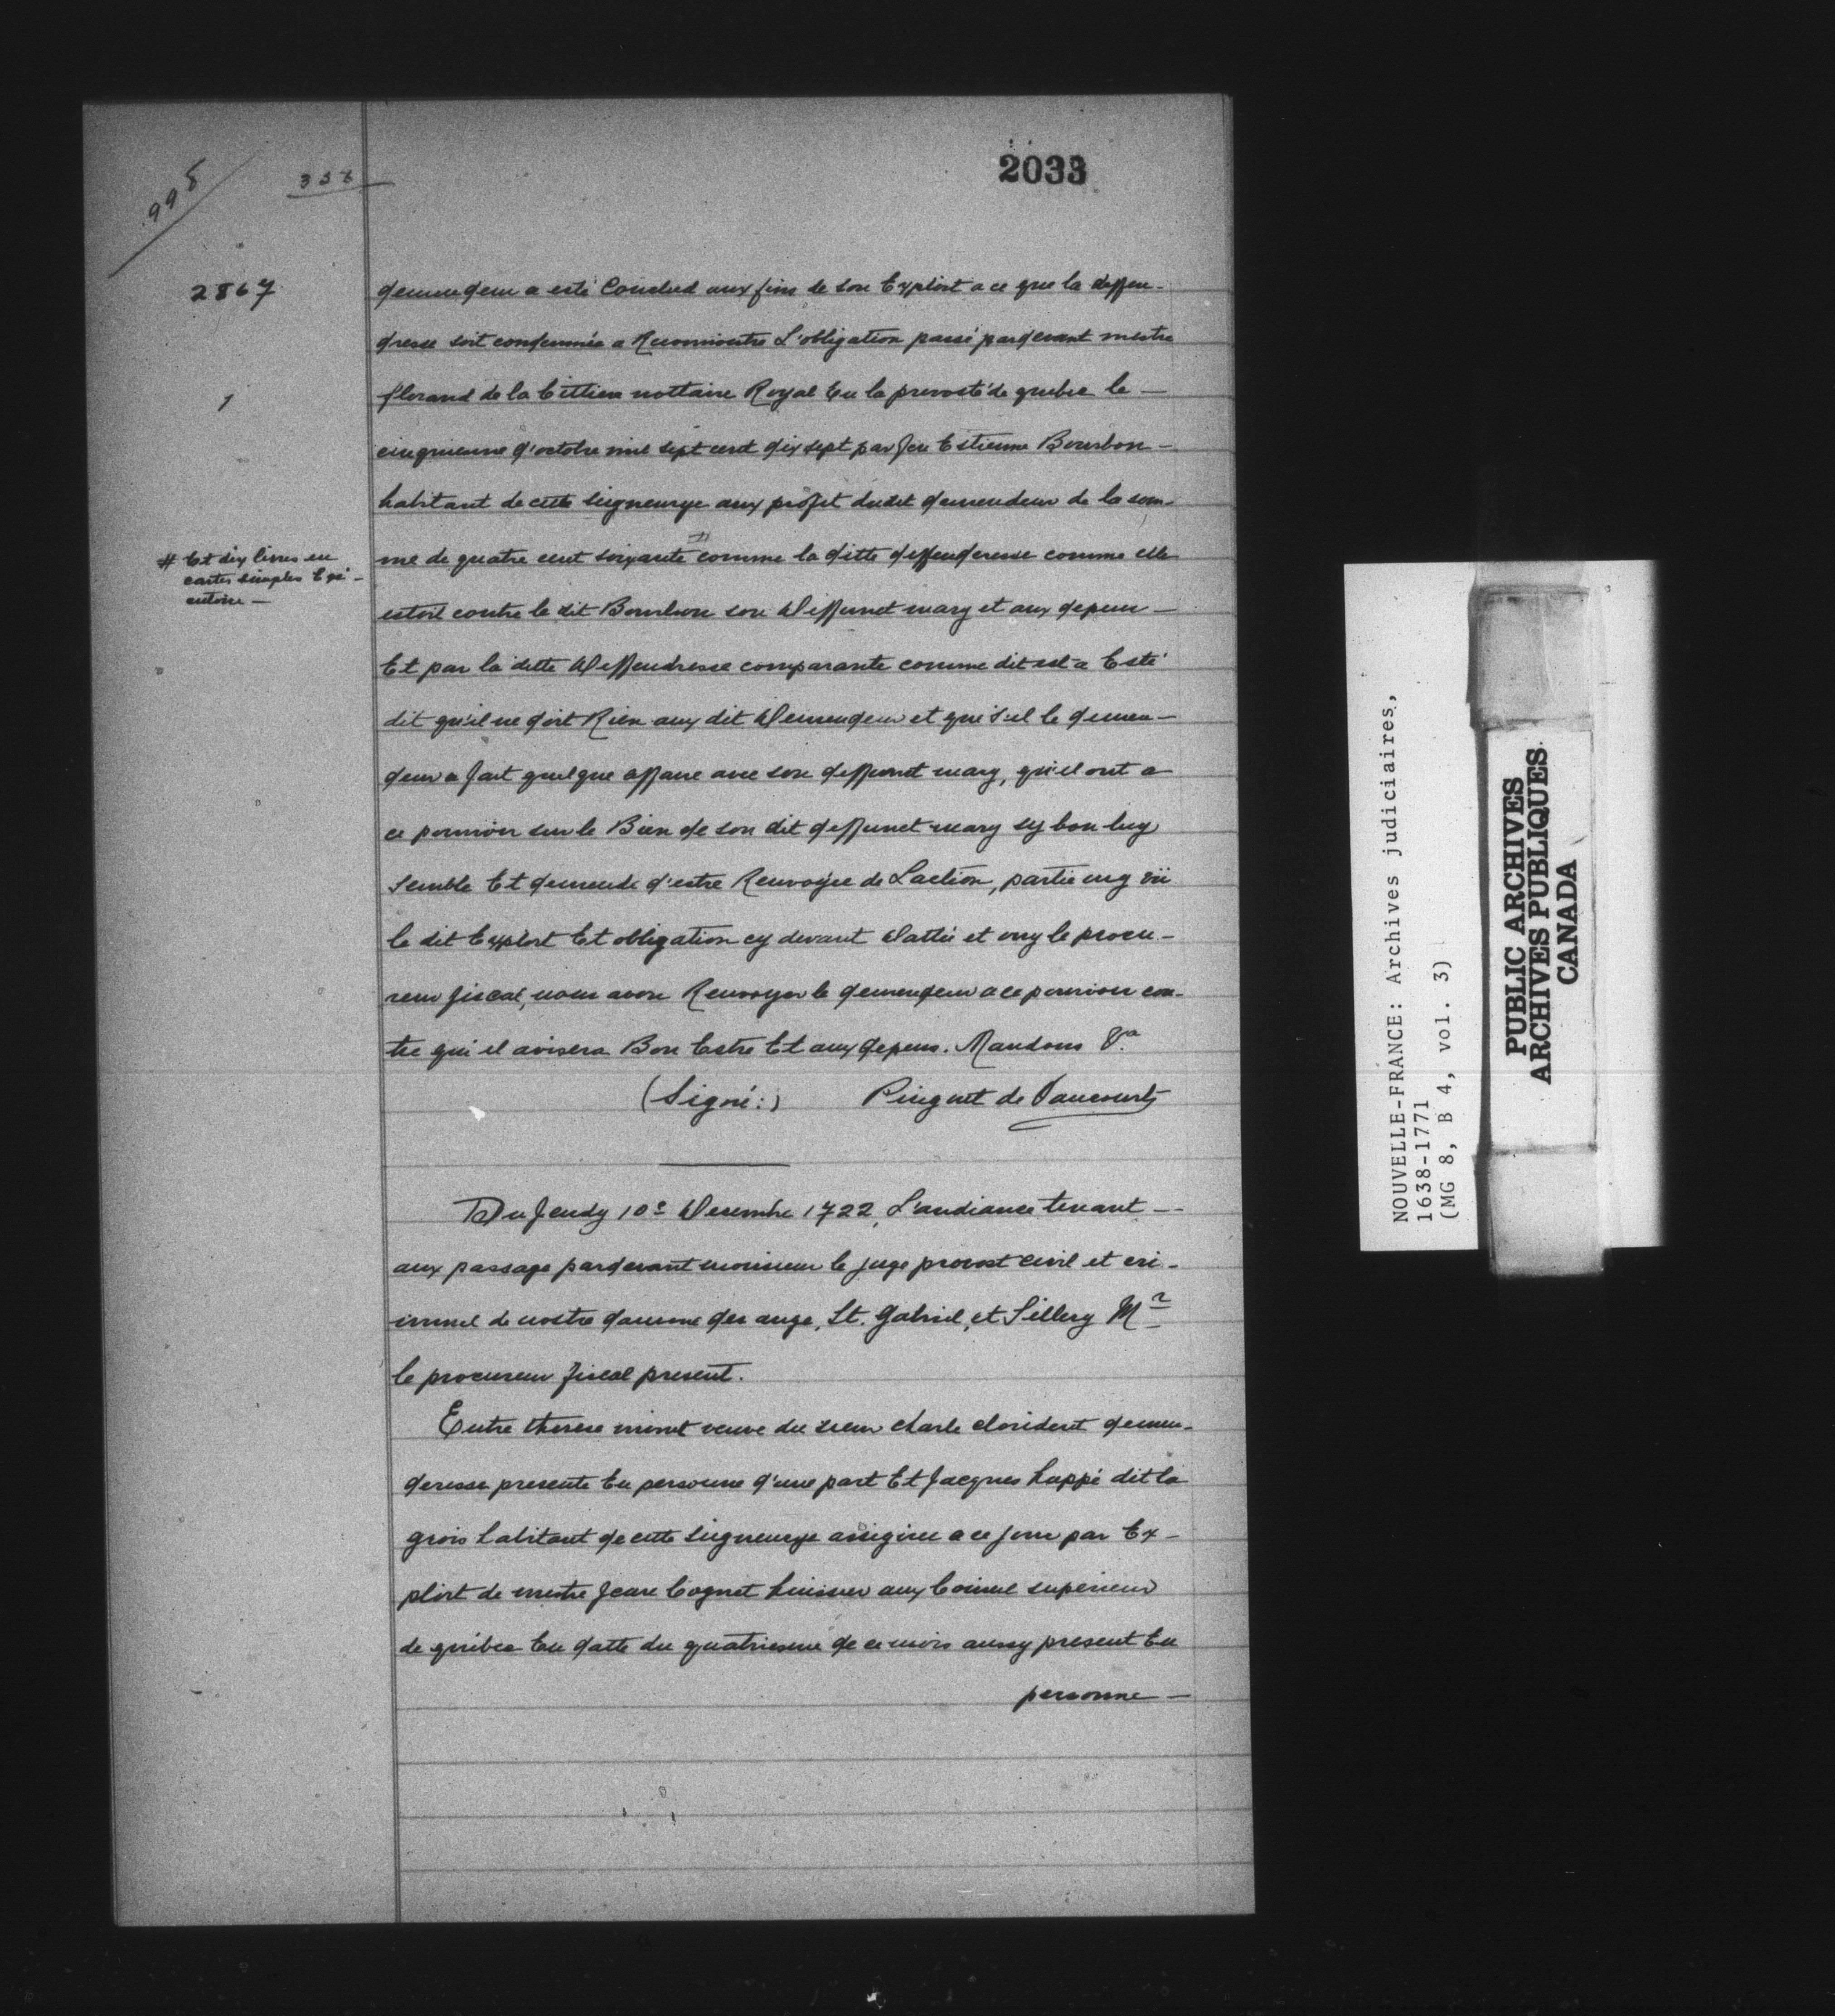 998
338
2033
2867
1
demendeur a esté Conclud aux fins de son Exploit a ce que la deffen-
dresse soit condemnée a Reconnoistre L'obligation passé pardevant mestre
florand de la Cettiere nottaire Royal En la prevosté de quebec le -
cinquiesme d'octobre mil sept cent dix sept par feu Estienne Bourbon -
habitant de cette seigneurye aux profit dudit demendeur de la som-
me de quatre cent soixante # comme la ditte deffenderesse comme elle
# Et dix livres en
cartes simples Expé-
cutoire -
estoit contre le dit Bourbon son Deffunct mary et aux depens -
Et par la ditte Deffendresse comparante comme dit est a Esté
dit qu'il ne doit Rien aux dit Demendeur et que s'il le demen-
deur a fait quelque affaire avec son deffunct mary, qu'il ont a
ce pourvoir sur le Bien de son dit deffunct mary sy bon luy
semble Et demende d'estre Renvoyée de Laction, partie ouy vü
le dit Exploit Et obligation cy devant Dattée et ouy le procu-
reur fiscal, nous avons Renvoyer le demendeur a ce pourvoir con-
tre qui il avisera Bon Estre Et aux depens. Mandons &a
(Signé:) Pinguet de Vaucourt
Du Jeudy 10e Decembre 1722, L'audiance tenant -
aux passage pardevant monsieur le juge provost civil et cri-
iminel de nostre damme des ange, St. Gabriel, et Sillery Mr
le procureur fiscal present.
Entre therese minet veuve du sieur charle cloridert demen-
deresse presente En personne d'une part Et Jacques huppé dit la
grois habitant de cette seigneurye assignee a ce jour par Ex-
ploit de mestre Jean Cognet huissier aux Conseil superieur
de quebec En datte du quatriesme de ce mois aussy present En
personne -
NOUVELLE-FRANCE: Archives judiciaires,
1638-1771
(MG 8, B 4, vol. 3)
PUBLIC ARCHIVES
ARCHIVES PUBLIQUES
CANADA